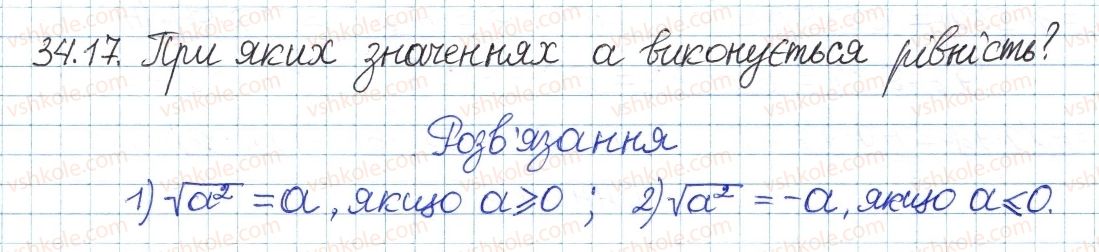 34.17. При яких значеннях а виконується рівність?
Розв'язання
1) √a² = a, якщо a ⩾ 0 ; 2) √a² = -a, якщо a ⩽ 0.